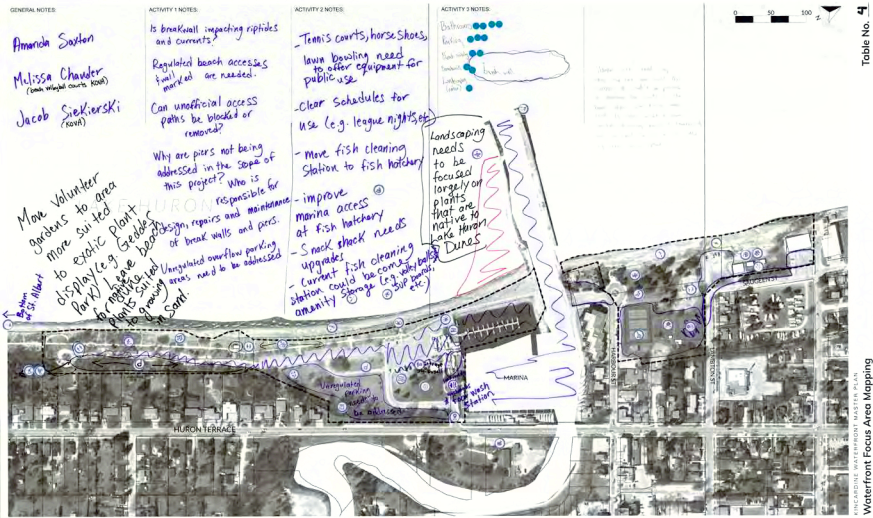 GENERAL NOTES:
Amanda Saxton
Melissa
(beach volleyball courts KOVA)
Jacob Siekierski
(KOVA)
Move Volunteer
gardens to area
more suited
to exotic plant
display (e.g. Geddes
Park) Leave beach
for native
plants suited
to growing
in Sand.
Bottom
of St. Albert
ACTIVITY 1 NOTES:
Is breakwall impacting riptides
and currents?
Regulated beach accesses
& well marked are needed.
Can unofficial access
paths be blocked or
removed?
Why are piers not being
addressed in the scope of
this project? Who is
responsible for
design, repairs and maintenance
of break walls and piers.
Unregulated overflow parking
areas need to be addressed
ACTIVITY 2 NOTES:
- Tennis courts, horse shoes,
lawn bowling need
to offer equipment for
public use
- Clear schedules for
use (e.g. league nights, etc)
- move fish cleaning
Station to fish hatchery
- improve
marina access
at fish hatchery
- Snack shack needs
upgrades
- Current fish cleaning
station could become
amenity storage (e.g. volley balls,
sup boards,
etc.)
ACTIVITY 3 NOTES:
Bathrooms
Parking
Landscaping
needs
to be
focused
largely on
plants
that are
native to
Lake Huron
Dunes
HURON
Unregulated
parking
needs to
be addressed
wash
Station
MARINA
HURON TERRACE
HARBOUR ST
LAMBTON ST
SAUGEEN ST
0 50 100
N
Table No. 4
KINCARDINE WATERFRONT MASTER PLAN
Waterfront Focus Area Mapping